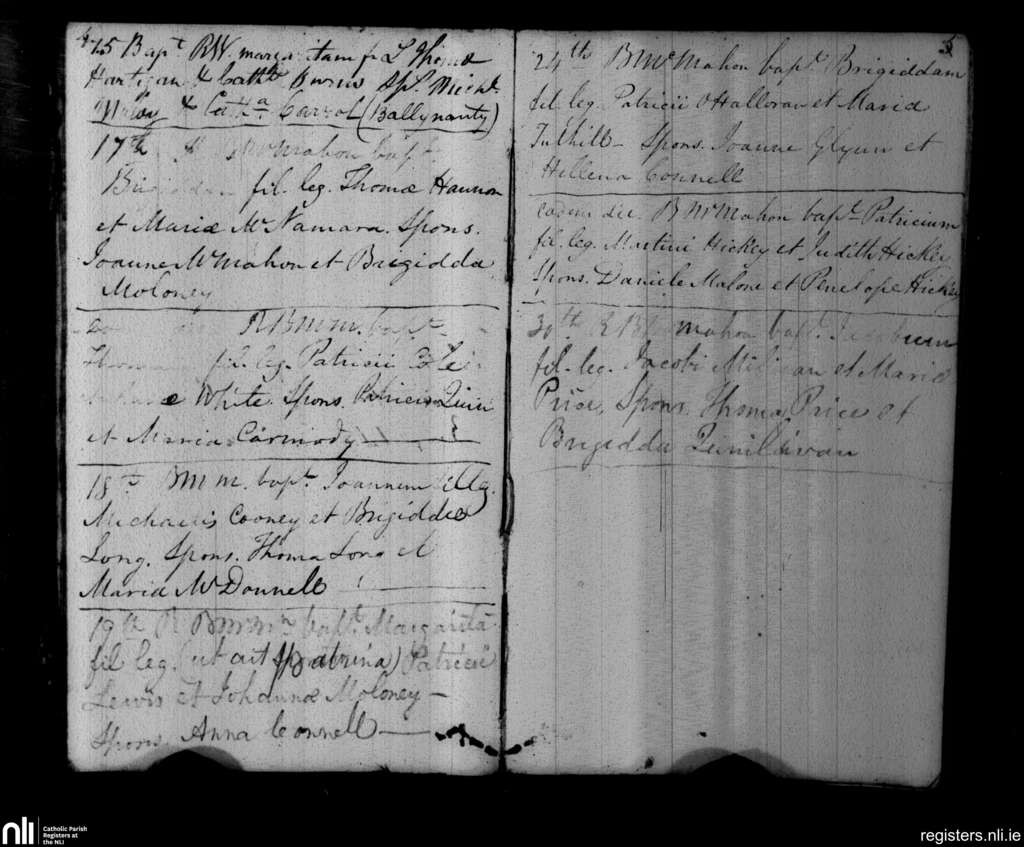 4
15 Bapt RW. margaritam f. L Thomæ
Hartigan & Cathe Burns Sps. Michl
& Catha Carrol (Ballynanty)
17th BMcMahon bapt
Brigiddam fil. leg. Thomæ Hannon
et Mariæ McNamara. Spons.
Joanne McMahon et Brigidda
Moloney
RBMm. bapt
fil. leg. Patricii
White. Spons. Patricio Quin
et Maria Carmody
18th BMm. bapt. Joannem fil lg.
Michaelis Cooney et Brigiddæ
Long. Spons. Thoma Long et
Maria McDonnell
19th R bapt. Margarita
fil leg. (ut ait Patrina) Patricii
Lewis et Johannæ Moloney —
Spons. Anna Connell —
5
24th BMcMahon bapt. Brigiddam
fil. leg. Patricii OHalloran et Maria
Tuthill — Spons. Joanne Glynn et
Hellena Connell
eadem die. B McMahon bapt. Patricium
fil. leg. Martini Hickey et Judith Hickey
Spons. Daniele Malone et Penelope Hickey
30th R B McMahon bapt. Jacobum
fil. leg. Jacobi et Maria
Price, Spons. Thoma Price et
Brigidda Quinlivan
nli
Catholic Parish
Registers at
the NLI
registers.nli.ie